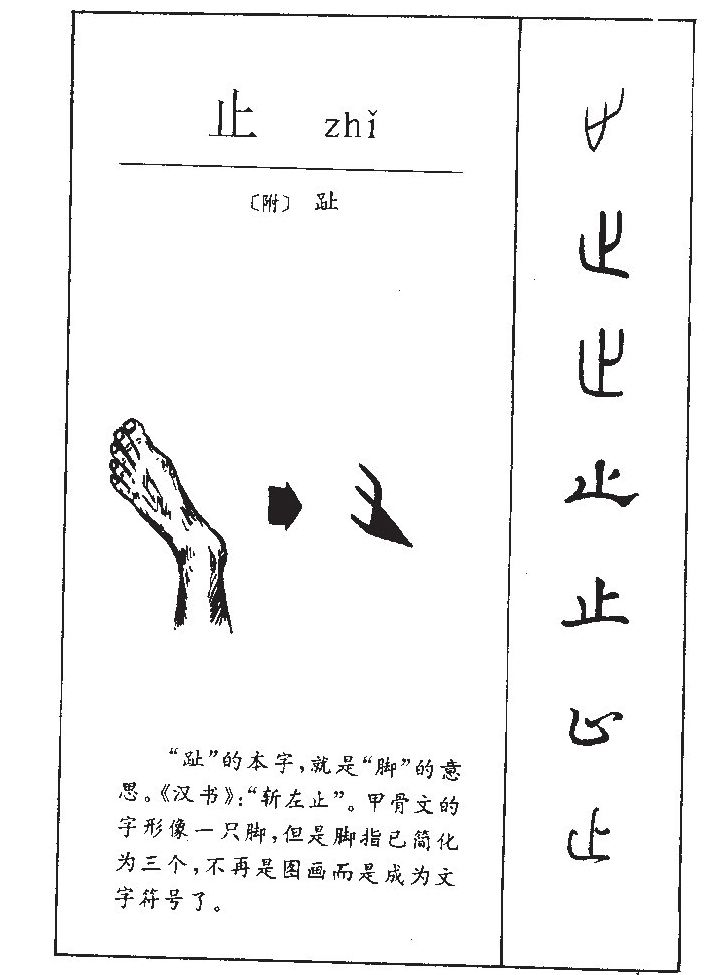 止 zhǐ
〔附〕 趾
“趾”的本字,就是“脚”的意
思。《汉书》:“斩左止”。甲骨文的
字形像一只脚,但是脚指已简化
为三个,不再是图画而是成为文
字符号了。
止
止
止
止
止
止
止